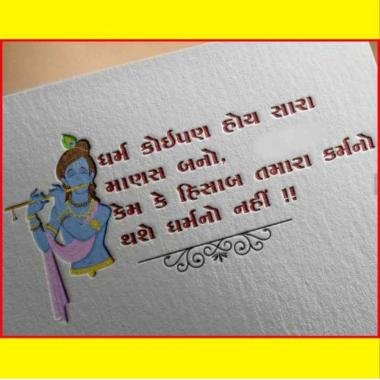 ધર્મ કોઈપણ હોય સારા
માણસ બનો,
કેમ કે હિસાબ તમારા કર્મનો
થશે ધર્મનો નહીં !!